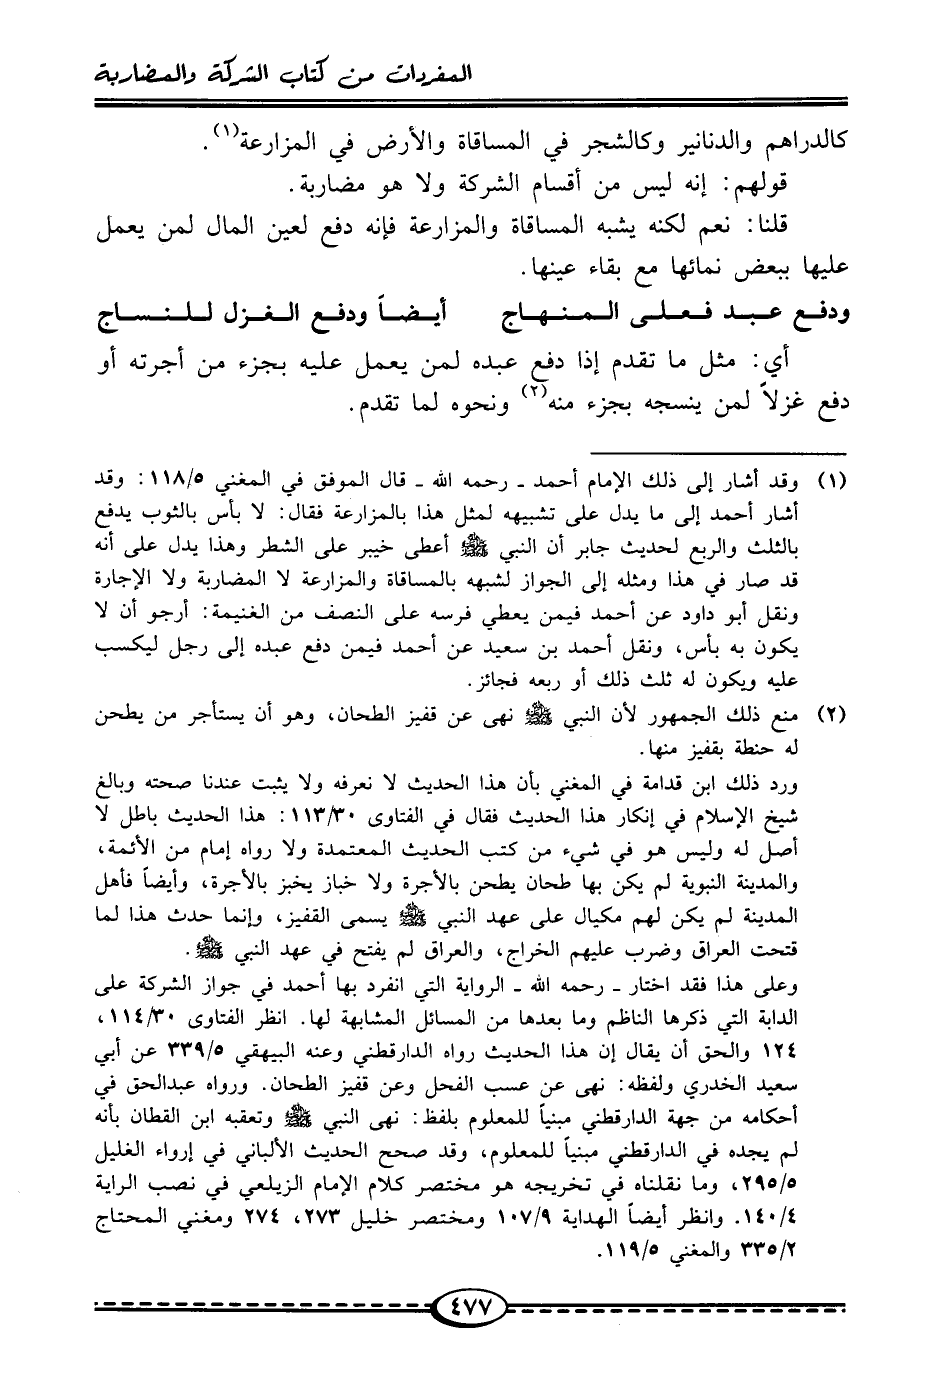 المفردات من كتاب الشركة والمضاربة
كالدراهم والدنانير وكالشجر في المساقاة والأرض في المزارعة(١).
قولهم: إنه ليس من أقسام الشركة ولا هو مضاربة.
قلنا: نعم لكنه يشبه المساقاة والمزارعة فإنه دفع لعين المال لمن يعمل
عليها ببعض نمائها مع بقاء عينها.
ودفع عبد فعلى المنهاج أيضاً ودفع الغزل للنساج
أي: مثل ما تقدم إذا دفع عبده لمن يعمل عليه بجزء من أجرته أو
دفع غزلاً لمن ينسجه بجزء منه(٢) ونحوه لما تقدم.
(١) وقد أشار إلى ذلك الإمام أحمد ـ رحمه الله ـ قال الموفق في المغني ١١٨/٥: وقد
أشار أحمد إلى ما يدل على تشبيهه لمثل هذا بالمزارعة فقال: لا بأس بالثوب يدفع
بالثلث والربع لحديث جابر أن النبي ﷺ أعطى خيبر على الشطر وهذا يدل على أنه
قد صار في هذا ومثله إلى الجواز لشبهه بالمساقاة والمزارعة لا المضاربة ولا الإجارة
ونقل أبو داود عن أحمد فيمن يعطي فرسه على النصف من الغنيمة: أرجو أن لا
يكون به بأس، ونقل أحمد بن سعيد عن أحمد فيمن دفع عبده إلى رجل ليكسب
عليه ويكون له ثلث ذلك أو ربعه فجائز.
(٢) منع ذلك الجمهور لأن النبي ﷺ نهى عن قفيز الطحان، وهو أن يستأجر من يطحن
له حنطة بقفيز منها.
ورد ذلك ابن قدامة في المغني بأن هذا الحديث لا نعرفه ولا يثبت عندنا صحته وبالغ
شيخ الإسلام في إنكار هذا الحديث فقال في الفتاوى ١١٣/٣٠: هذا الحديث باطل لا
أصل له وليس هو في شيء من كتب الحديث المعتمدة ولا رواه إمام من الأئمة،
والمدينة النبوية لم يكن بها طحان يطحن بالأجرة ولا خباز يخبز بالأجرة، وأيضاً فأهل
المدينة لم يكن لهم مكيال على عهد النبي ﷺ يسمى القفيز، وإنما حدث هذا لما
فتحت العراق وضرب عليهم الخراج، والعراق لم يفتح في عهد النبي ﷺ.
وعلى هذا فقد اختار ـ رحمه الله ـ الرواية التي انفرد بها أحمد في جواز الشركة على
الدابة التي ذكرها الناظم وما بعدها من المسائل المشابهة لها. انظر الفتاوى ١١٤/٣٠،
١٢٤ والحق أن يقال إن هذا الحديث رواه الدارقطني وعنه البيهقي ٣٣٩/٥ عن أبي
سعيد الخدري ولفظه: نهى عن عسب الفحل وعن قفيز الطحان. ورواه عبدالحق في
أحكامه من جهة الدارقطني مبنياً للمعلوم بلفظ: نهى النبي ﷺ وتعقبه ابن القطان بأنه
لم يجده في الدارقطني مبنياً للمعلوم، وقد صحح الحديث الألباني في إرواء الغليل
٢٩٥/٥، وما نقلناه في تخريجه هو مختصر كلام الإمام الزيلعي في نصب الراية
١٤٠/٤. وانظر أيضاً الهداية ١٠٧/٩ ومختصر خليل ٢٧٣، ٢٧٤ ومغني المحتاج
٣٣٥/٢ والمغني ١١٩/٥.
٤٧٧